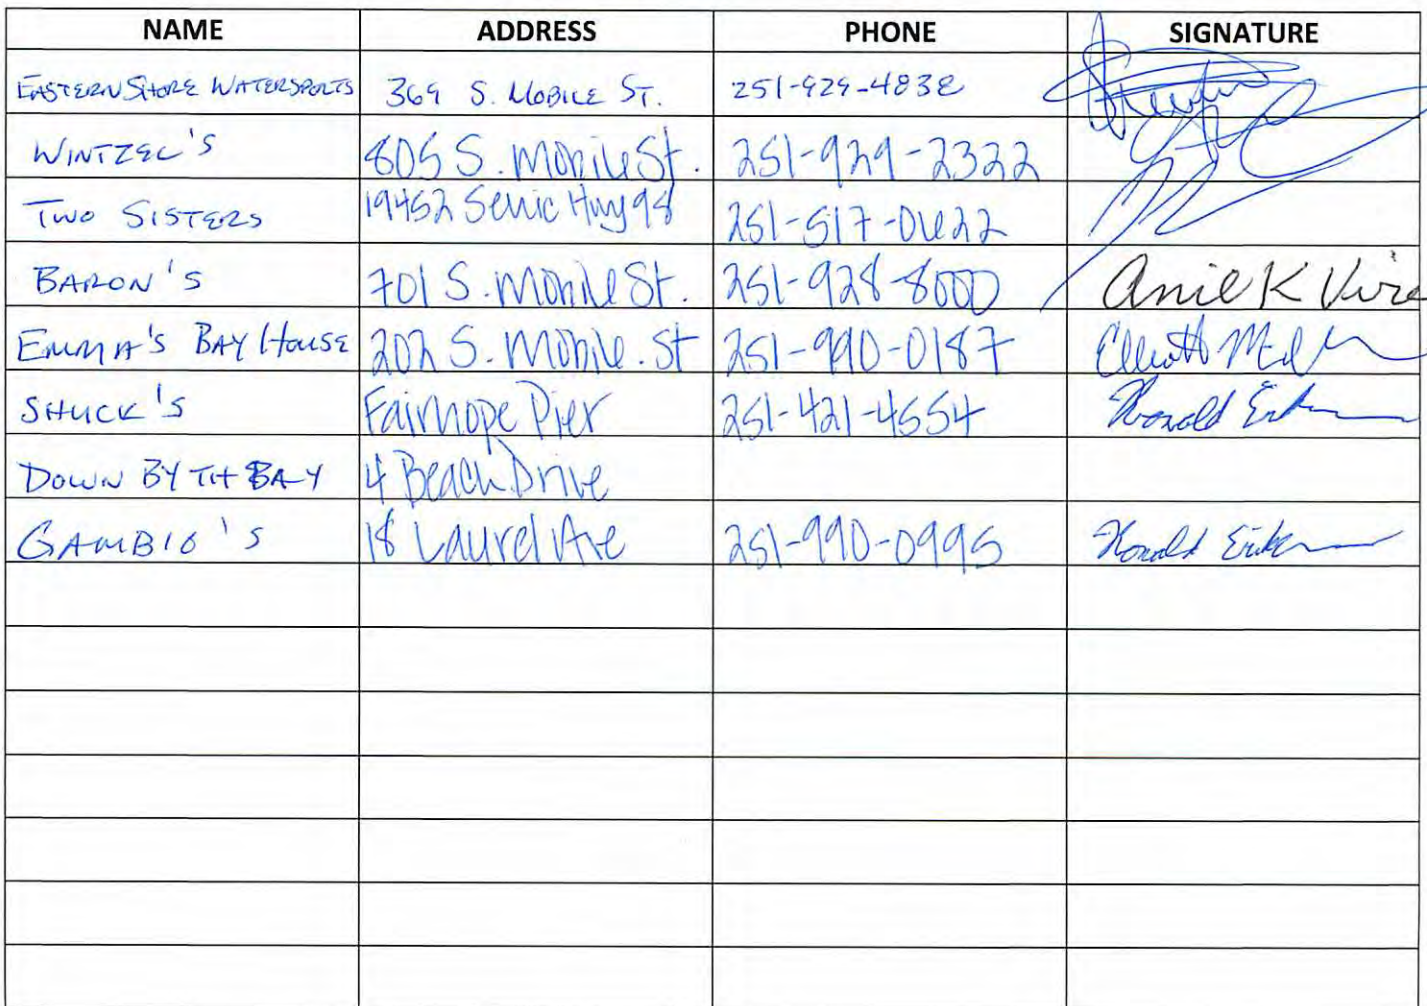 NAME ADDRESS PHONE SIGNATURE
EASTERN SHORE WATERSPORTS 369 S. MOBILE ST. 251-929-4838
WINTZEL'S 805 S. Mobile St. 251-929-2322
TWO SISTERS 19452 Senic Hwy 98 251-517-0622
BARON'S 701 S. Mobile St. 251-928-8000 Anil K Vira
EMMA'S BAY HOUSE 202 S. Mobile. St 251-990-0187 Elliott
SHUCK'S Fairhope Pier 251-421-4554 Ronald
DOWN BY TH BAY 4 Beach Drive
GAMBIO'S 18 Laurel Ave 251-990-0995 Ronald